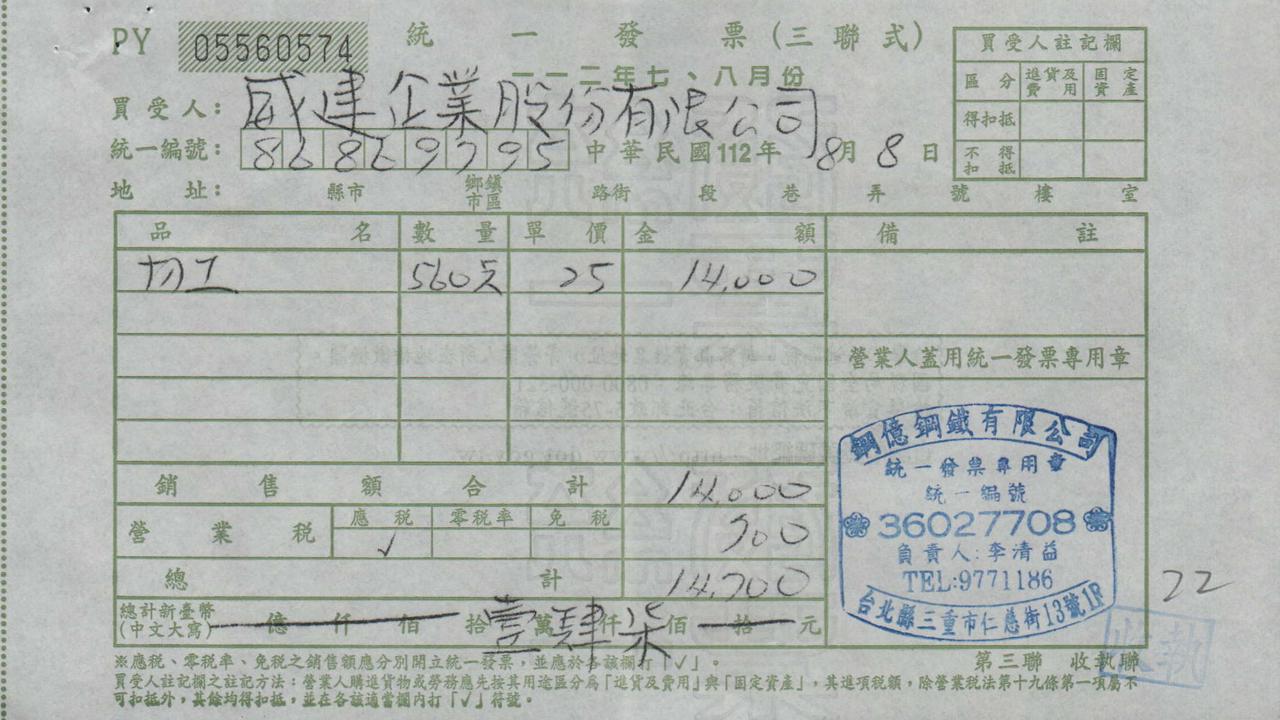 PY 05560574 統一發票(三聯式)
一一二年七、八月份
買受人註記欄
區分 進貨及費用 固定資產
得扣抵
不得扣抵
買受人: 威建企業股份有限公司
統一編號: 86869795 中華民國112年8月8日
地址: 縣市 鄉鎮市區 路街 段 巷 弄 號 樓 室
品名 數量 單價 金額 備註
切工 560 25 14,000
營業人蓋用統一發票專用章
銷售額合計 14,000
營業稅 應稅 零稅率 免稅 700
✓
總計 14,700
總計新臺幣(中文大寫) 億仟佰拾壹萬肆仟柒佰拾元
鋼億鋼鐵有限公司
統一發票專用章
統一編號
36027708
負責人:李清益
TEL:9771186
台北縣三重市仁慈街13號1F
22
收執
※應稅、零稅率、免稅之銷售額應分別開立統一發票,並應於各該欄打「✓」。
第三聯 收執聯
買受人註記欄之註記方法:營業人購進貨物或勞務應先按其用途區分為「進貨及費用」與「固定資產」,其進項稅額,除營業稅法第十九條第一項屬不
可扣抵外,其餘均得扣抵,並在各該適當欄內打「✓」符號。